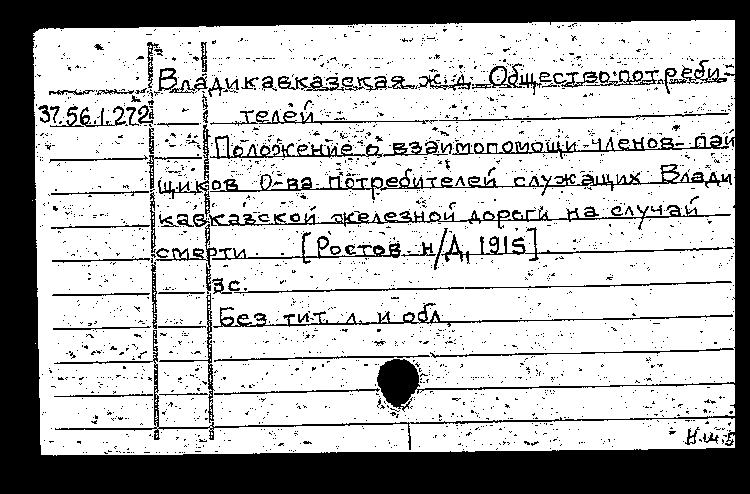 Владикавказская ж.д. Общество потреби-
37.56.1.272 телей
Положение о взаимопомощи членов-пай
щиков О-ва потребителей служащих Влади
кавказской железной дороги на случай
смерти. [Ростов н/Д, 1915].
3с.
Без тит. л. и обл.